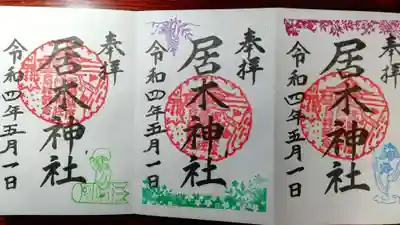 奉拝
居木神社
令和四年五月一日
奉拝
居木神社
令和四年五月一日
奉拝
居木神社
令和四年五月一日